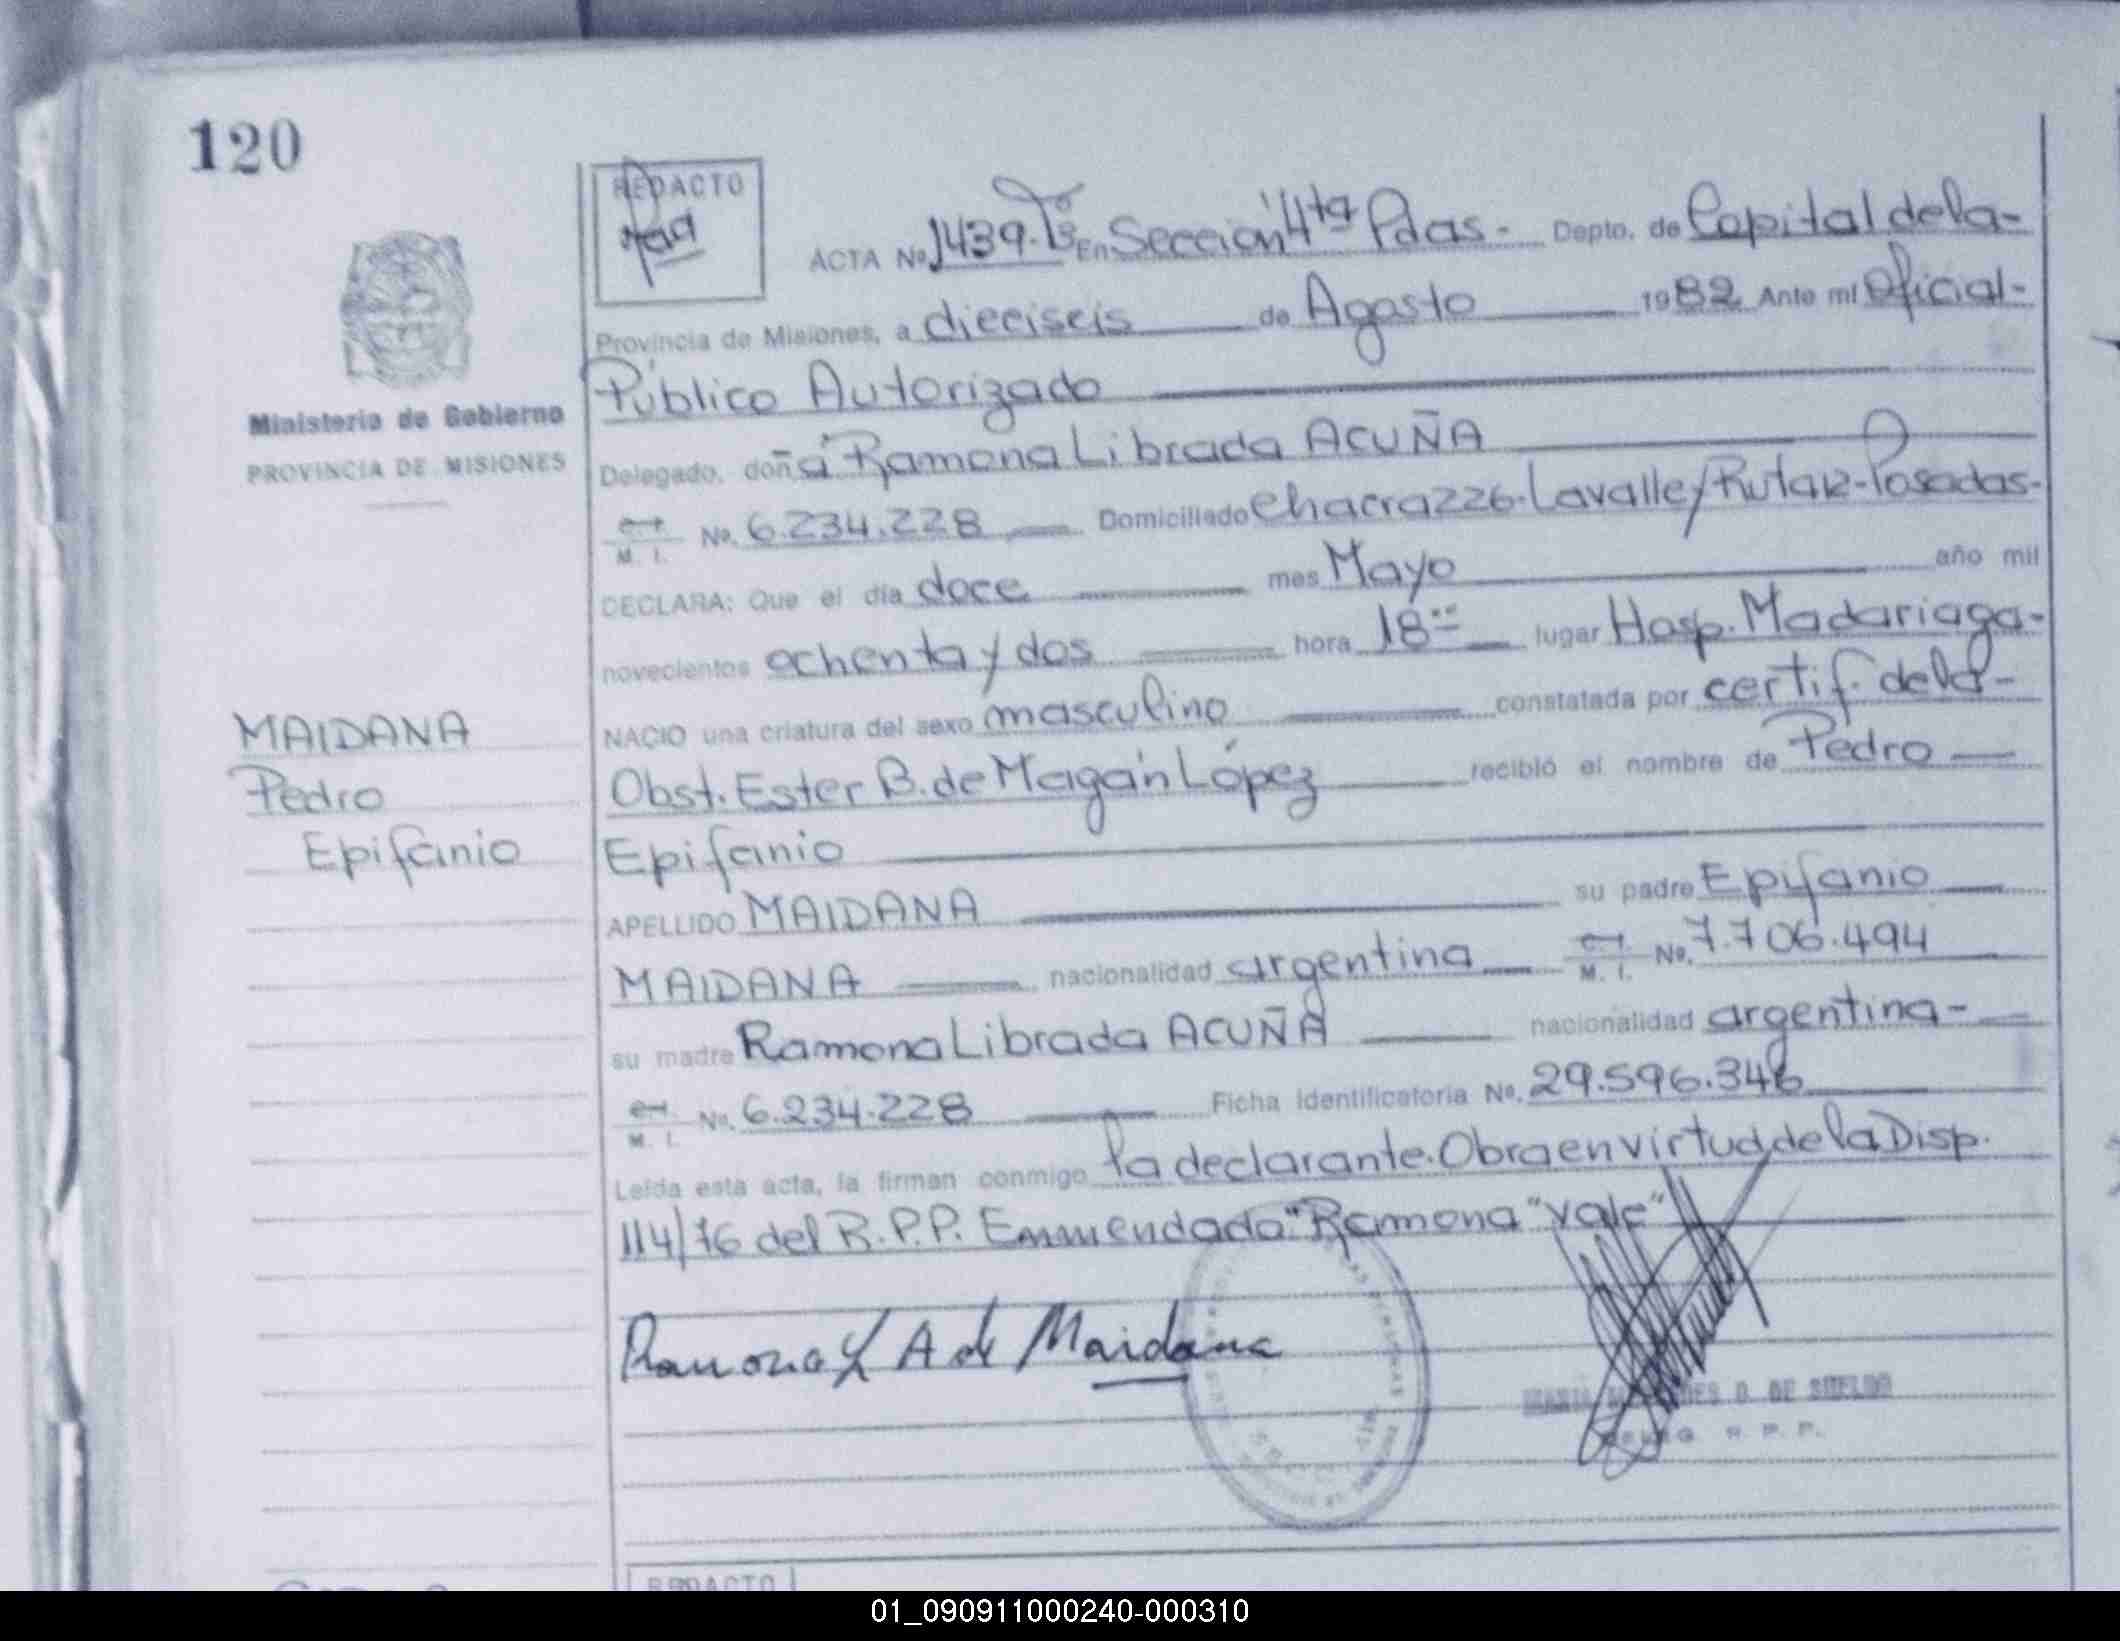 120
REDACTO
ACTA No. 1439. En Sección 4ta Pdas - Depto. de Capital de la -
Provincia de Misiones, a dieciseis de Agosto 1982 Ante mí Oficial -
Público Autorizado
Ministerio de Gobierno
PROVINCIA DE MISIONES
Delegado, doña Ramona Librada ACUÑA
M. I. No. 6.234.228 Domiciliado Chacra 226. Lavalle y Ruta 12 - Posadas -
DECLARA: Que el día doce mes Mayo año mil
novecientos ochenta y dos hora 18 lugar Hosp. Madariaga -
NACIO una criatura del sexo masculino constatada por certif. de la -
Obst. Ester B. de Magán López recibió el nombre de Pedro
Epifanio
APELLIDO MAIDANA su padre Epifanio
MAIDANA nacionalidad argentina M. I. No. 7.706.494
su madre Ramona Librada ACUÑA nacionalidad argentina -
M. I. No. 6.234.228 Ficha identificatoria No. 29.596.346
Leída esta acta, la firman conmigo la declarante. Obra en virtud de la Disp.
114/76 del R.P.P. Enmendado: "Ramona" vale"
MAIDANA
Pedro
Epifanio
Ramona L A de Maidana
D. DE SUELDO
R. P. P.
REDACTO
01_090911000240-000310